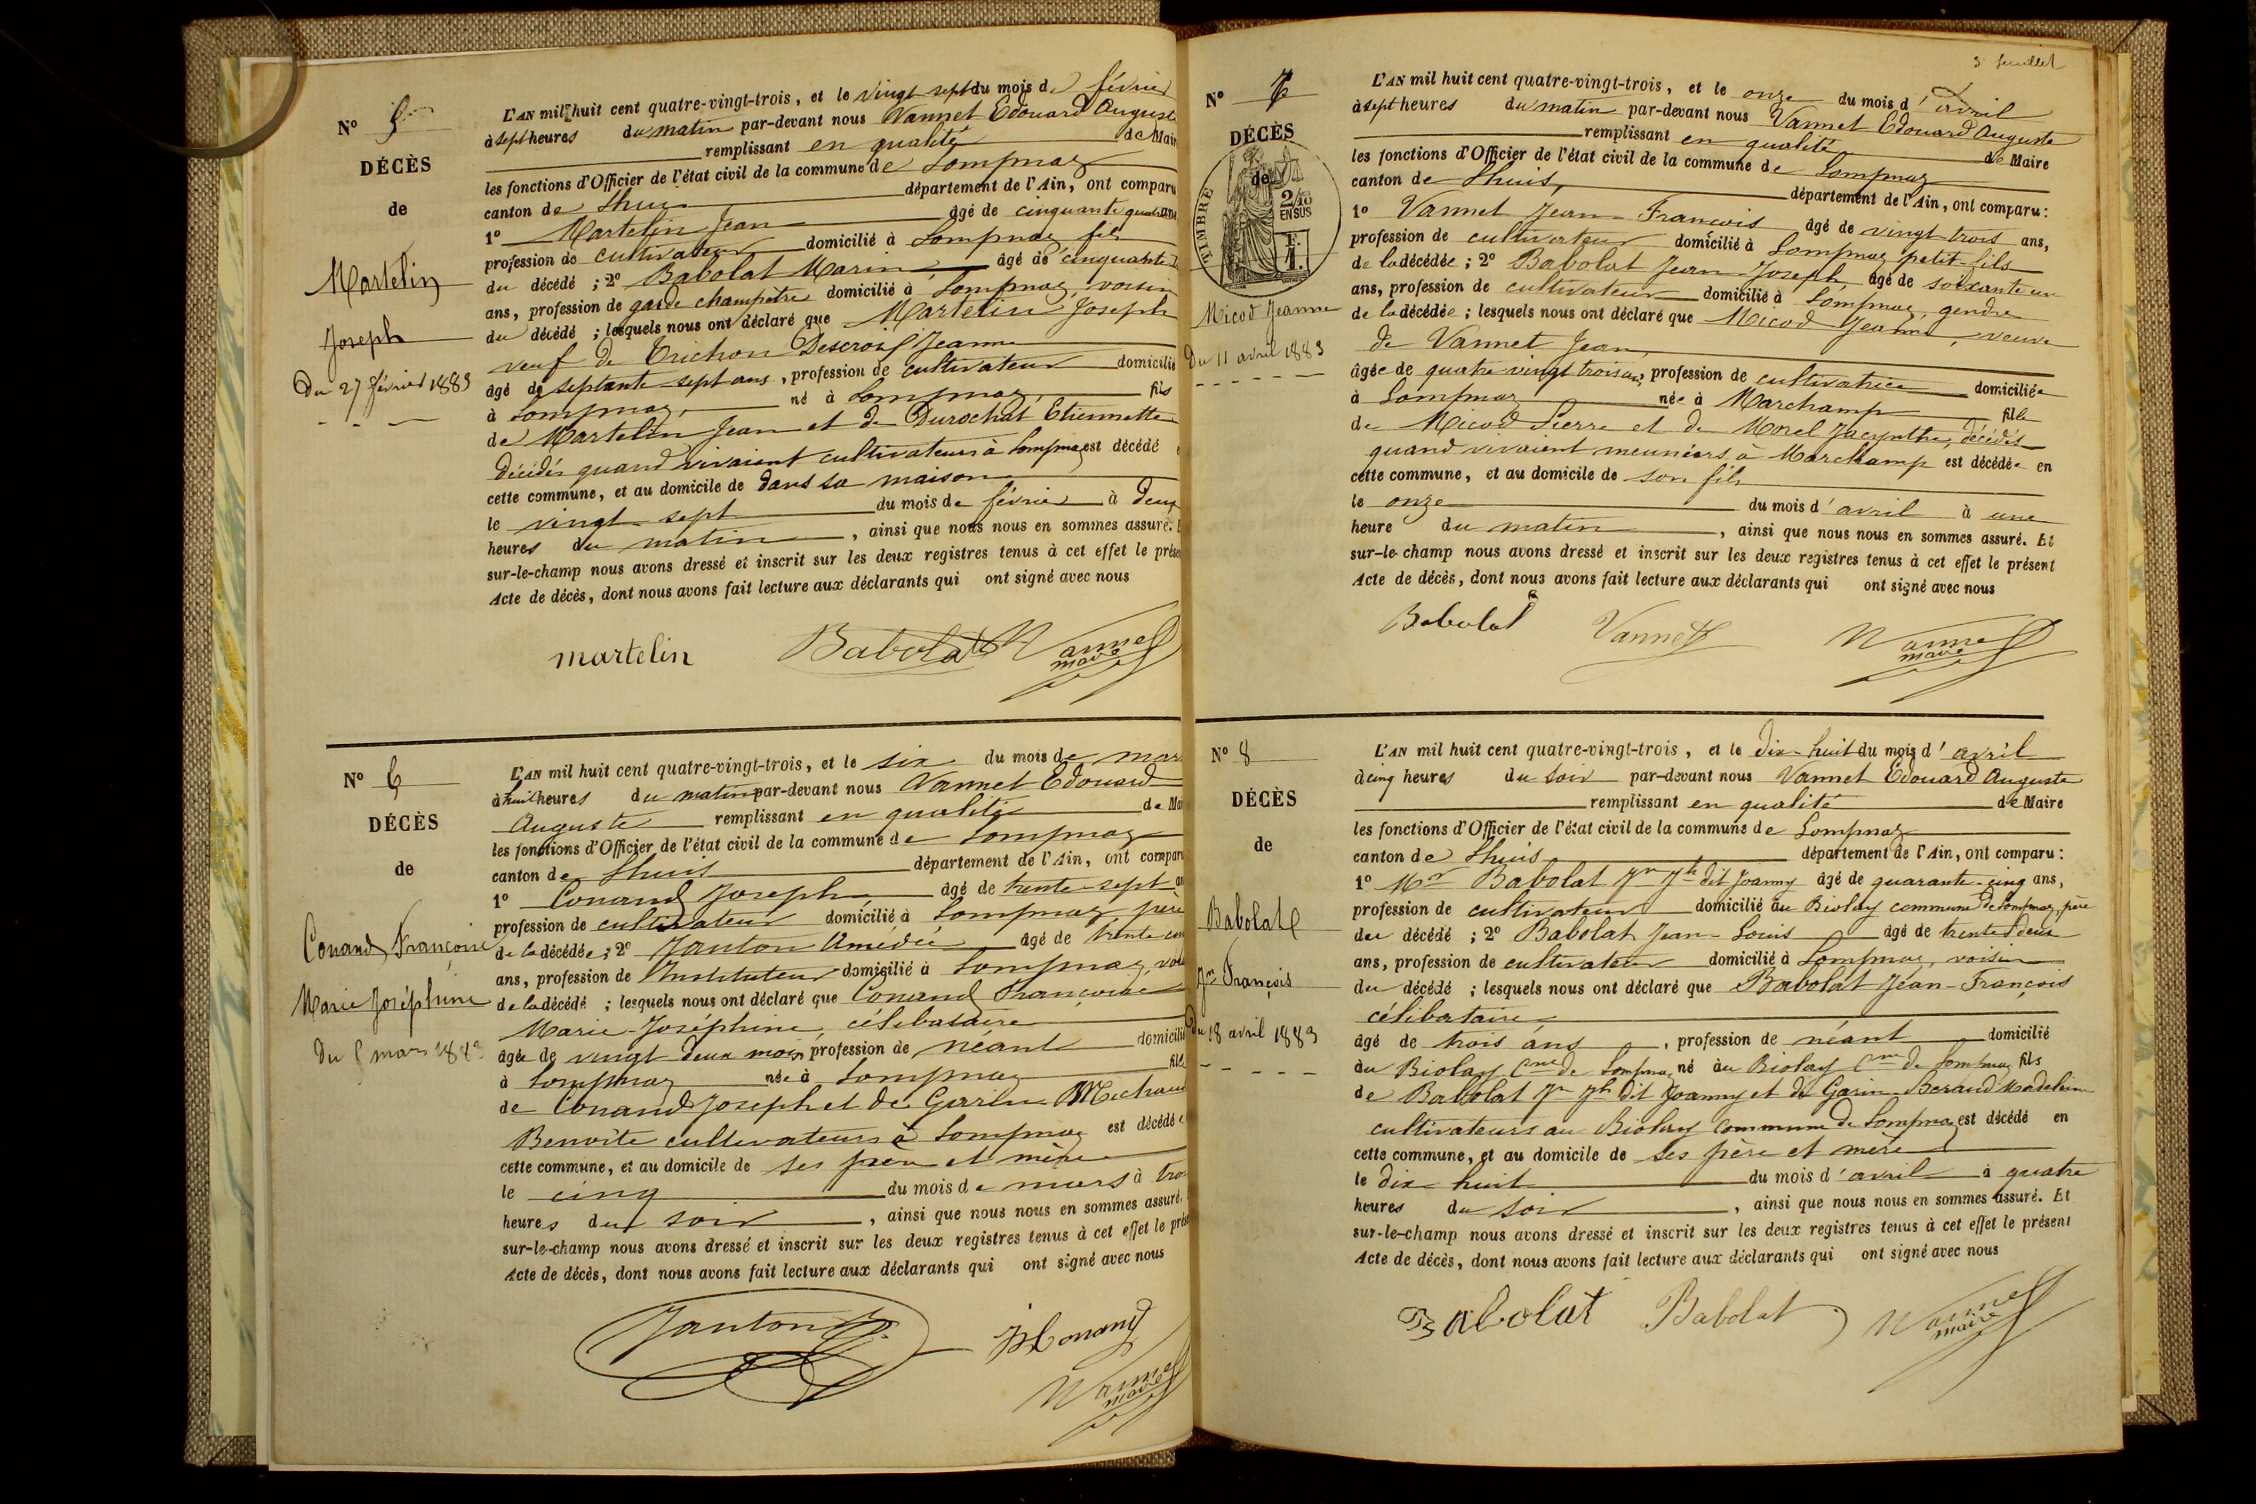 N° 5
DÉCÈS
de
Martelin
Joseph
Du 27 février 1883
L'AN mil huit cent quatre-vingt-trois, et le vingt sept du mois de février
à sept heures du matin par-devant nous Vannet Edouard Auguste
remplissant en qualité de Mair
les fonctions d'Officier de l'état civil de la commune de Lompnaz
canton de Lhuis département de l'Ain, ont comparu
1° Martelin Jean âgé de cinquante quatre ans
profession de cultivateur domicilié à Lompnaz fils
du décédé ; 2° Babolat Marin âgé de cinquante
ans, profession de garde champêtre domicilié à Lompnaz, voisin
du décédé ; lesquels nous ont déclaré que Martelin Joseph
veuf de Trichon Jeanne
âgé de septante sept ans, profession de cultivateur domicilié
à Lompnaz, né à Lompnaz, fils
de Martelin Jean et de Durochat Etiennette
décédés quand vivaient cultivateurs à Lompnaz est décédé
cette commune, et au domicile de dans sa maison
le vingt-sept du mois de février à deux
heures du matin, ainsi que nous nous en sommes assuré.
sur-le-champ nous avons dressé et inscrit sur les deux registres tenus à cet effet le prése
Acte de décès, dont nous avons fait lecture aux déclarants qui ont signé avec nous
martelin Babolat Vannet
maire
N° 6
DÉCÈS
de
Conand Françoise
Marie Joséphine
Du 5 mars 1883
L'AN mil huit cent quatre-vingt-trois, et le six du mois de mars
à huit heures du matin par-devant nous Vannet Edouard
Auguste remplissant en qualité de Mai
les fonctions d'Officier de l'état civil de la commune de Lompnaz
canton de Lhuis département de l'Ain, ont comparu
1° Conand Joseph âgé de trente-sept an
profession de cultivateur domicilié à Lompnaz père
de la décédée ; 2° Janton Amédée âgé de trente cinq
ans, profession de Instituteur domicilié à Lompnaz, vois
de la décédé ; lesquels nous ont déclaré que Conand Françoise
Marie-Joséphine, célibataire
âgée de vingt deux mois, profession de néant domicilié
à Lompnaz née à Lompnaz fille
de Conand Joseph et de Michaud
Benoîte cultivateurs à Lompnaz est décédée
cette commune, et au domicile de ses père et mère
le cinq du mois de mars à trois
heures du soir, ainsi que nous nous en sommes assuré.
sur-le-champ nous avons dressé et inscrit sur les deux registres tenus à cet effet le prése
Acte de décès, dont nous avons fait lecture aux déclarants qui ont signé avec nous
Janton Conand
Vannet
maire
3e feuillet
N° 7
DÉCÈS
de
TIMBRE
2/10
EN SUS
Micod Jeanne
Du 11 avril 1883
L'AN mil huit cent quatre-vingt-trois, et le onze du mois d'avril
à sept heures du matin par-devant nous Vannet Edouard Auguste
remplissant en qualité de Maire
les fonctions d'Officier de l'état civil de la commune de Lompnaz
canton de Lhuis, département de l'Ain, ont comparu :
1° Vannet Jean-François âgé de vingt trois ans,
profession de cultivateur domicilié à Lompnaz petit-fils
de la décédée ; 2° Babolat Jean-Joseph, âgé de soixante un
ans, profession de cultivateur domicilié à Lompnaz, gendre
de la décédée ; lesquels nous ont déclaré que Micod Jeanne, veuve
de Vannet Jean,
âgée de quatre vingt trois ans, profession de cultivatrice domiciliée
à Lompnaz née à Marchamp fille
de Micod Pierre et de Monel Jacynthe, décédés
quand vivaient meuniers à Marchamp est décédée en
cette commune, et au domicile de son fils
le onze du mois d'avril à une
heure du matin, ainsi que nous nous en sommes assuré. Et
sur-le-champ nous avons dressé et inscrit sur les deux registres tenus à cet effet le présent
Acte de décès, dont nous avons fait lecture aux déclarants qui ont signé avec nous
Babolat Vannet Vannet
maire
N° 8
DÉCÈS
de
Babolat
Jn François
du 18 avril 1883
L'AN mil huit cent quatre-vingt-trois, et le dix-huit du mois d'avril
à cinq heures du soir par-devant nous Vannet Edouard Auguste
remplissant en qualité de Maire
les fonctions d'Officier de l'état civil de la commune de Lompnaz
canton de Lhuis département de l'Ain, ont comparu :
1° Mr Babolat Jn Jh dit Joanny âgé de quarante-cinq ans,
profession de cultivateur domicilié au Biolay commune de Lompnaz, père
du décédé ; 2° Babolat Jean-Louis âgé de trente deux
ans, profession de cultivateur domicilié à Lompnaz, voisin
du décédé ; lesquels nous ont déclaré que Babolat Jean-François
célibataire,
âgé de trois ans, profession de néant domicilié
au Biolay Cne de Lompnaz né au Biolay Cne de Lompnaz fils
de Babolat Jn Jh dit Joanny et de Garin-Beraud Madeleine
cultivateurs au Biolay commune de Lompnaz est décédé en
cette commune, et au domicile de ses père et mère
le dix-huit du mois d'avril à quatre
heures du soir, ainsi que nous nous en sommes assuré. Et
sur-le-champ nous avons dressé et inscrit sur les deux registres tenus à cet effet le présent
Acte de décès, dont nous avons fait lecture aux déclarants qui ont signé avec nous
Babolat Babolat Vannet
maire